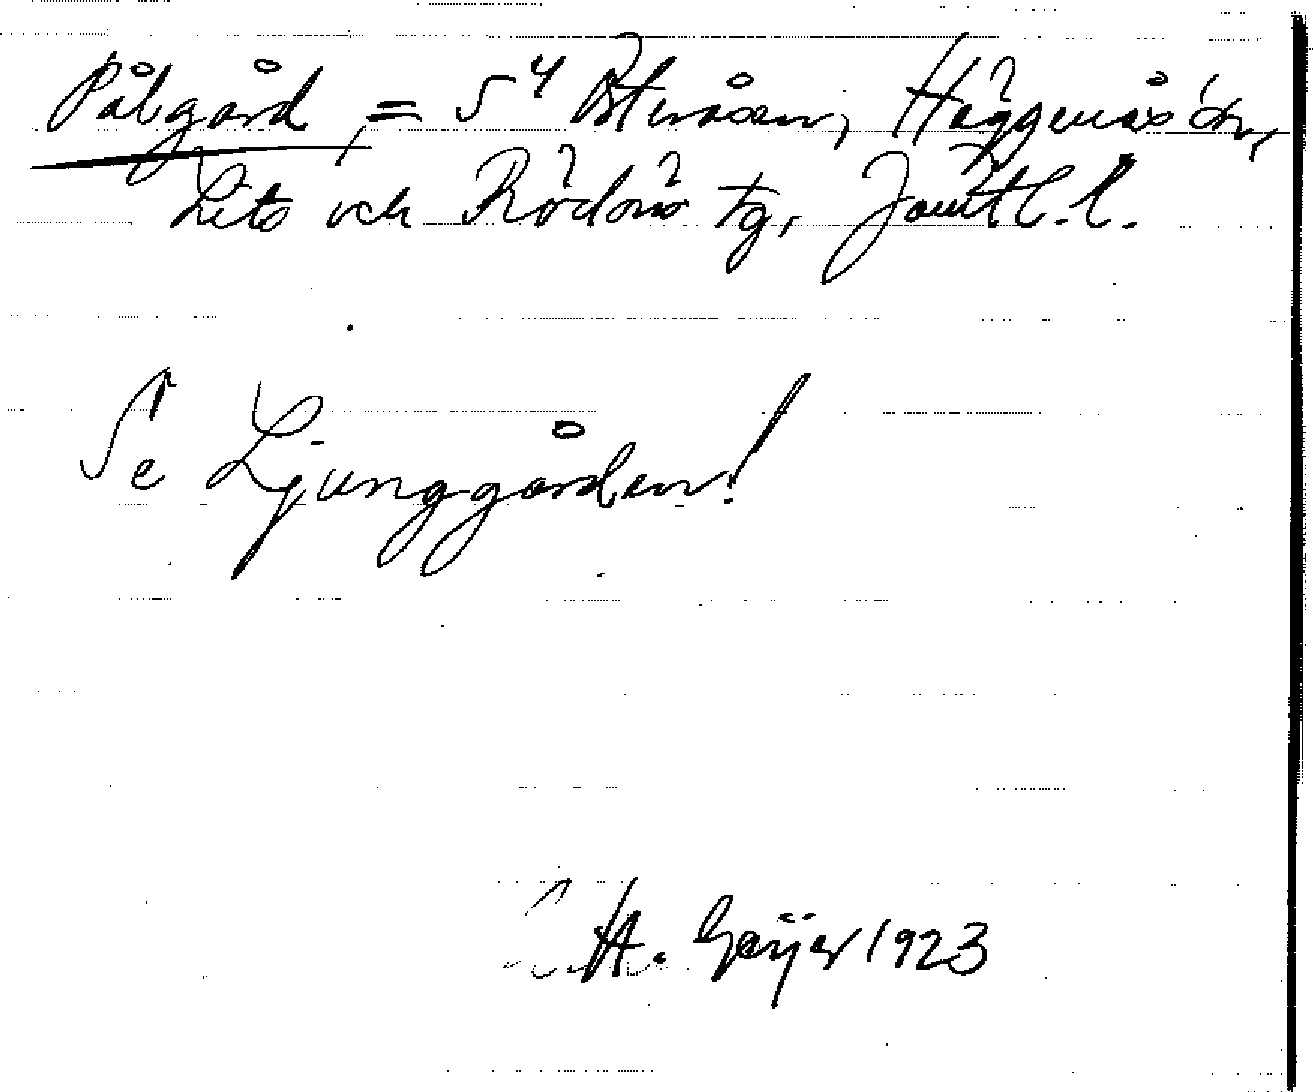 Pålgård, = S⁴ Österåsen, Häggenås sn,
Lits och Rödöns tg, Jämtl. l.
Se Ljunggården!
H. Geijer 1923